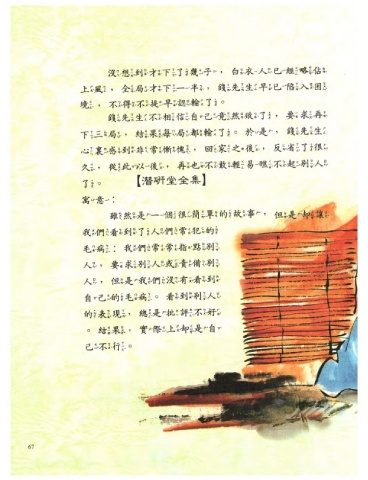 沒想到才下了幾子，白衣人已經略佔
上風，全局才下一半，錢先生早已陷入困
境，不得不提早認輸了。
錢先生不相信自己竟然敗了，要求再
下三局，結果每局都輸了。於是，錢先生
心裏感到非常慚愧，回家之後，反省了很
久，從此以後，再也不敢輕易瞧不起別人
了。【潛研堂全集】
寓意：
雖然是一個很簡單的故事，但是卻讓
我們看到了人們常犯的
毛病：我們常常指點別
人，要求別人或責備別
人，但是我們沒有看到
自己的毛病。看到別人
的表現，總是批評不好
。結果，實際上卻是自
己不行。
67